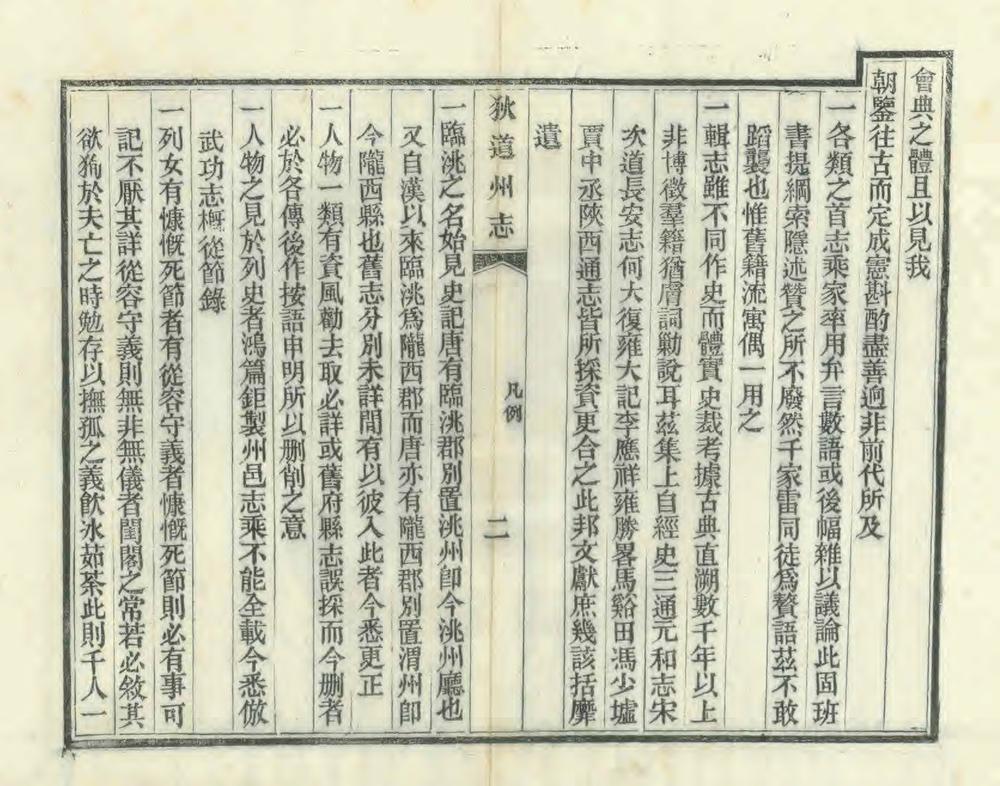 會典之體且以見我
朝鑒往古而定成憲斟酌盡善逈非前代所及
一各類之首志乘家率用弁言數語或後幅雜以議論此固班
書提綱索隱述贊之所不廢然千家雷同徒爲贅語茲不敢
蹈襲也惟舊籍流寓偶一用之
一輯志雖不同作史而體實史裁考據古典直溯數千年以上
非博徵羣籍猶膚詞勦說耳茲集上自經史三通元和志宋
次道長安志何大復雍大記李應祥雍勝畧馬谿田馮少墟
賈中丞陝西通志皆所採資更合之此邦文獻庶幾該括靡
遺
狄道州志
凡例
二
一臨洮之名始見史記唐有臨洮郡別置洮州卽今洮州廳也
又自漢以來臨洮爲隴西郡而唐亦有隴西郡別置渭州卽
今隴西縣也舊志分別未詳閒有以彼入此者今悉更正
一人物一類有資風勸去取必詳或舊府縣志誤採而今刪者
必於各傳後作按語申明所以刪削之意
一人物之見於列史者鴻篇鉅製州邑志乘不能全載今悉倣
武功志槪從節錄
一列女有慷慨死節者有從容守義者慷慨死節則必有事可
記不厭其詳從容守義則無非無儀者閨閣之常若必敘其
欲狥於夫亡之時勉存以撫孤之義飮冰茹茶此則千人一